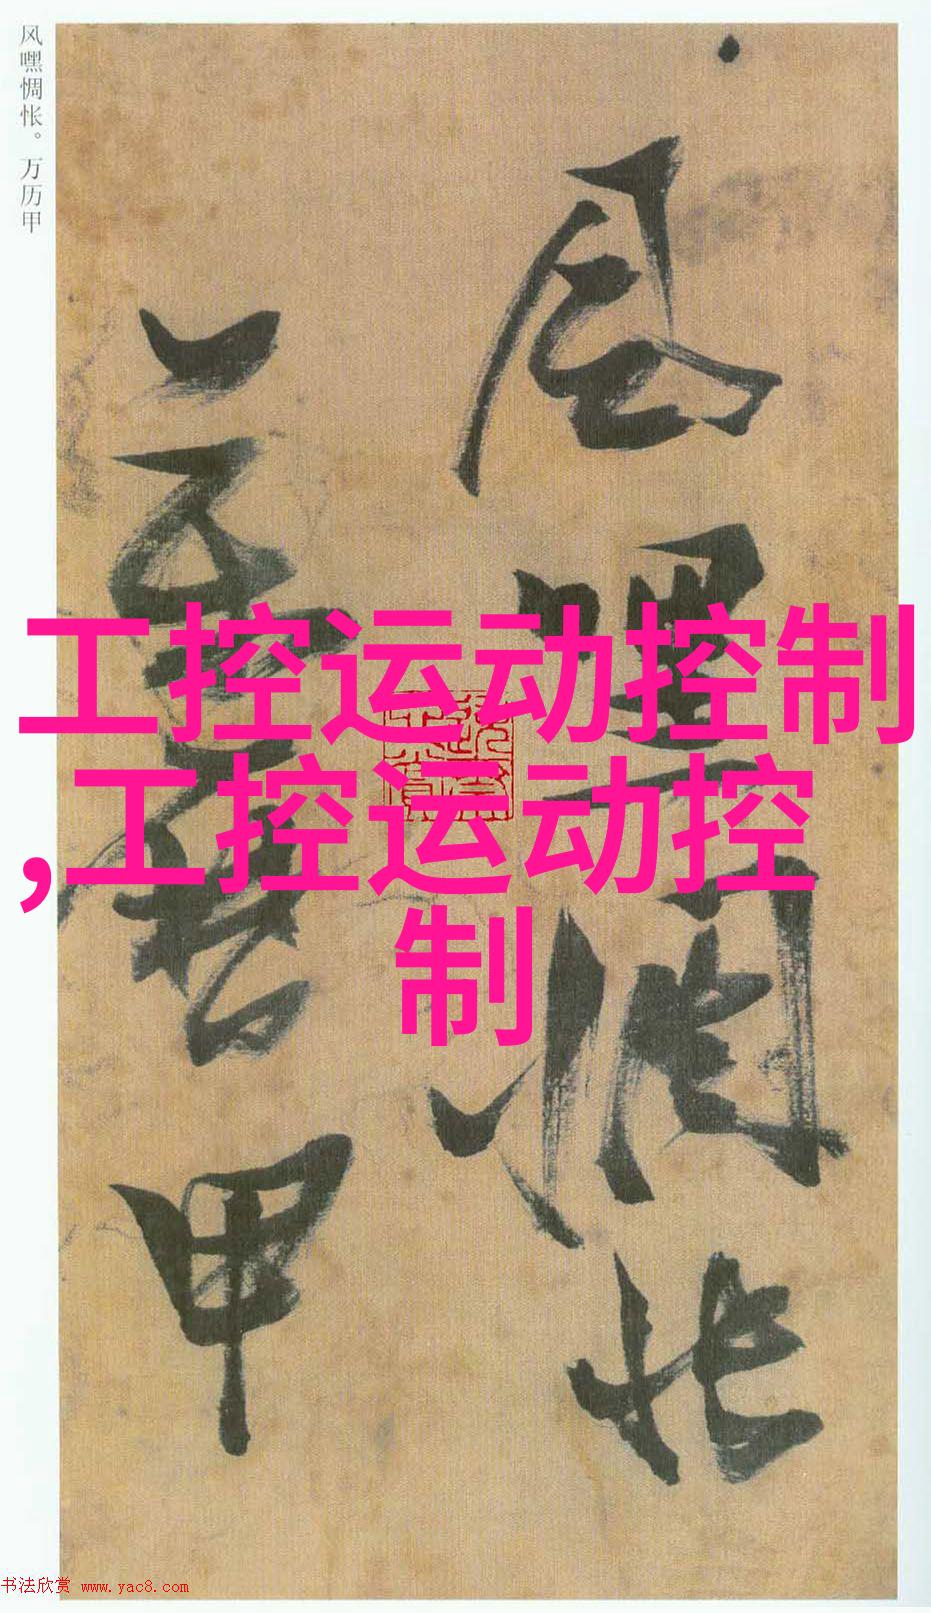 风嘿惆怅。万历甲
风
嘿
惆
怅
万
历
甲
工控运动控制
,工控运动控
制
书法欣赏 www.yac8.com